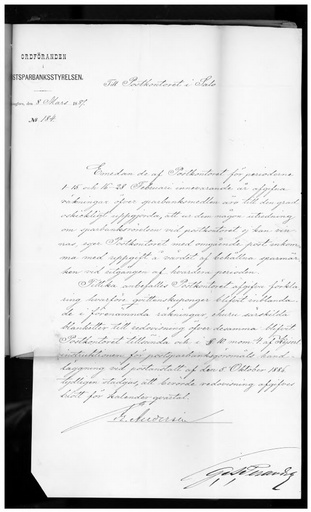 ORDFÖRANDEN
i
POSTSPARBANKSSTYRELSEN.
den 8 Mars 1887.
No 184.
Till Postkontoret i Salo
Emedan de af Postkontoret för perioderna
1-15 och 16-28 Februari innevarande år afgifna
räkningar öfver sparbanksmedlen äro till den grad
uppgjorda, att ur dem någon utredning
om sparbanksrörelsen vid postkontoret ej kan vin-
nas, eger Postkontoret med omgående post inkom-
ma med uppgift å värdet af behållna sparmär-
ken vid utgången af hvardera perioden.
Tillika anbefalles Postkontoret afgifva förkla-
ring hvarföre qvittenskuponger blifvit inblanda-
de i förenämnda räkningar, ehuru särskilda
blanketter till redovisning öfver desamma blifvit
Postkontoret tillsända och i § 10 mom 4 af
instruktionen för postsparbanksgöromåls hand-
läggning vid postanstalt af den 5 Oktober 1886
tydligen stadgas, att berörde redovisning afgifves
blott för kalender qvartal.